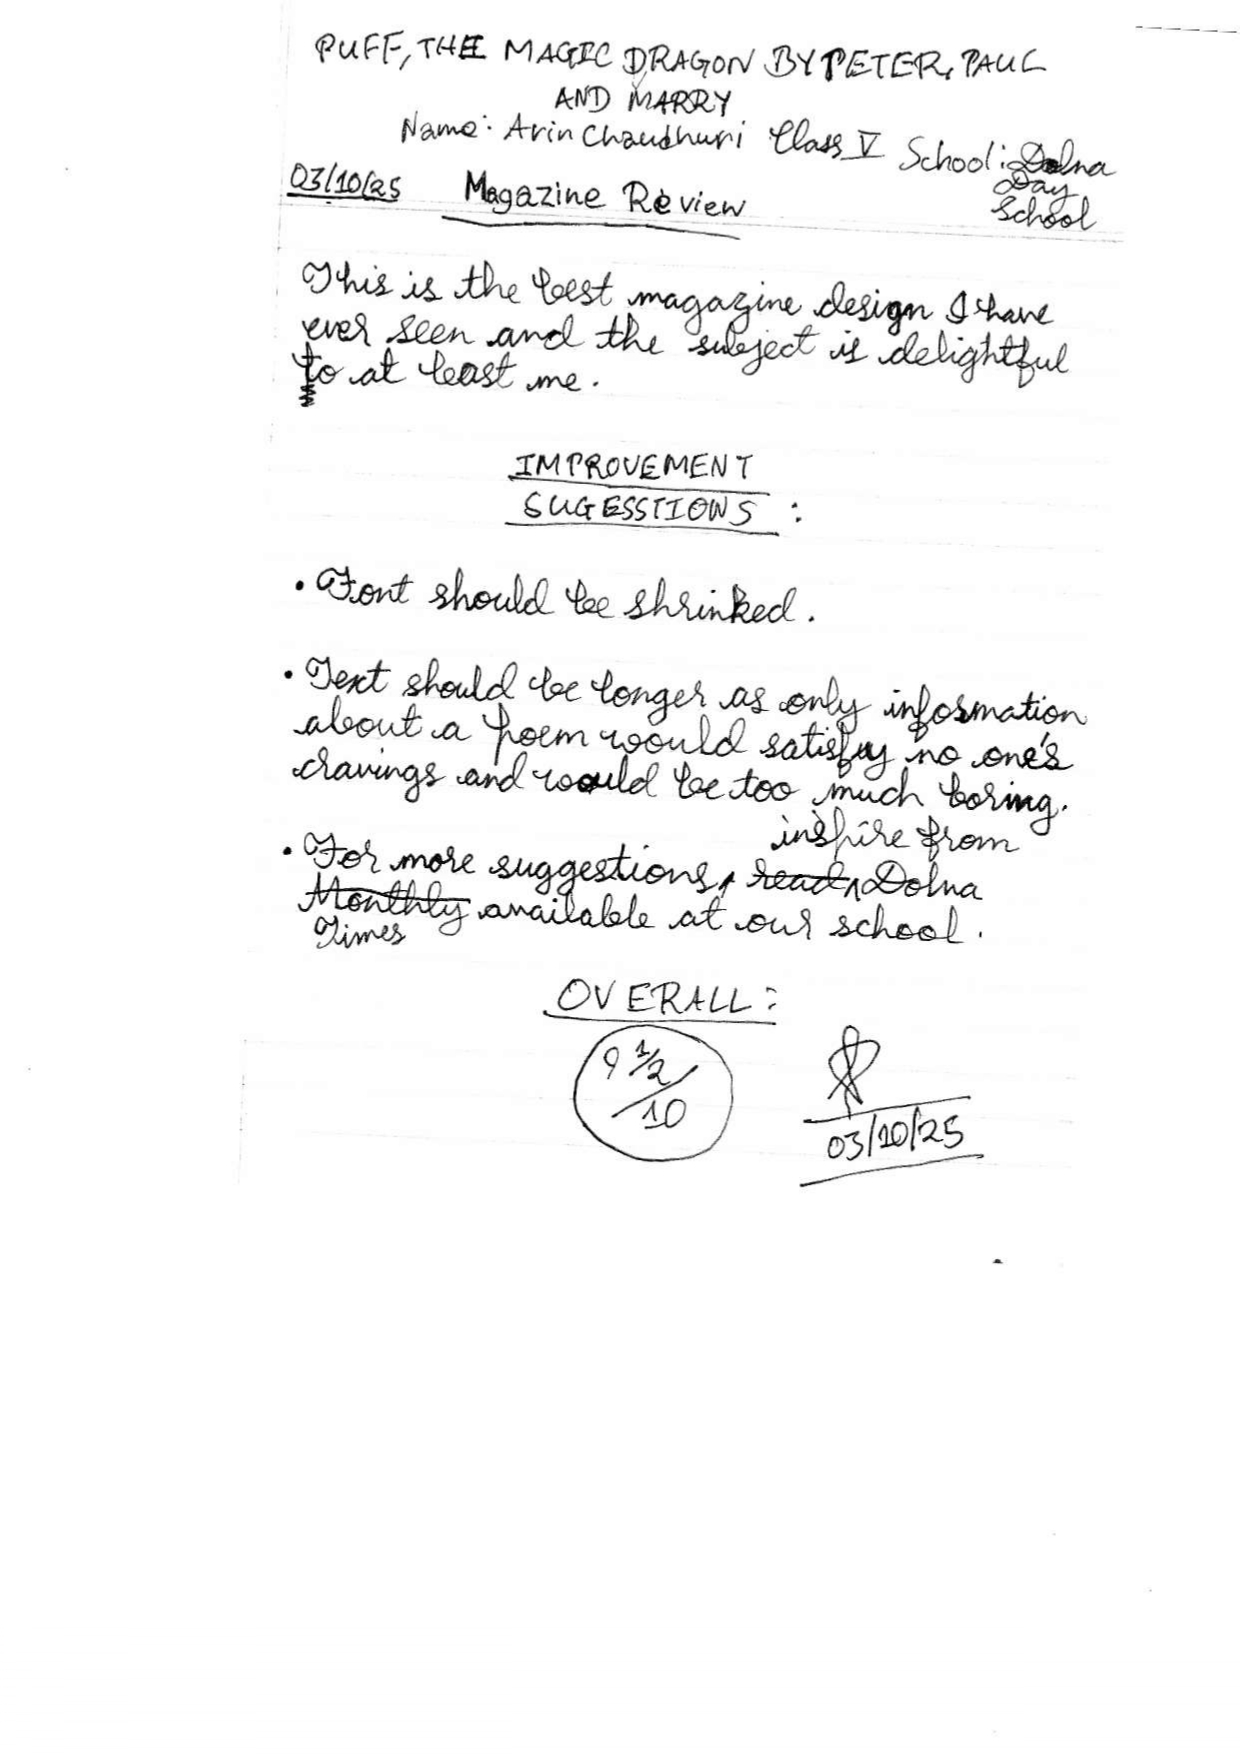 PUFF, THE MAGIC DRAGON BY PETER, PAUL
AND MARRY
Name: Arin Chaudhuri Class V School: Dolna
Day
School
03/10/25 Magazine Review
This is the best magazine design I have
ever seen and the subject is delightful
to at least me.
IMPROVEMENT
SUGESSTIONS :
• Font should be shrinked.
• Text should be longer as only information
about a poem would satisfy no one's
cravings and would be too much boring.
inspire from
• For more suggestions, read Dolna
Monthly available at our school.
Times
OVERALL:
9 1/2/10
03/10/25